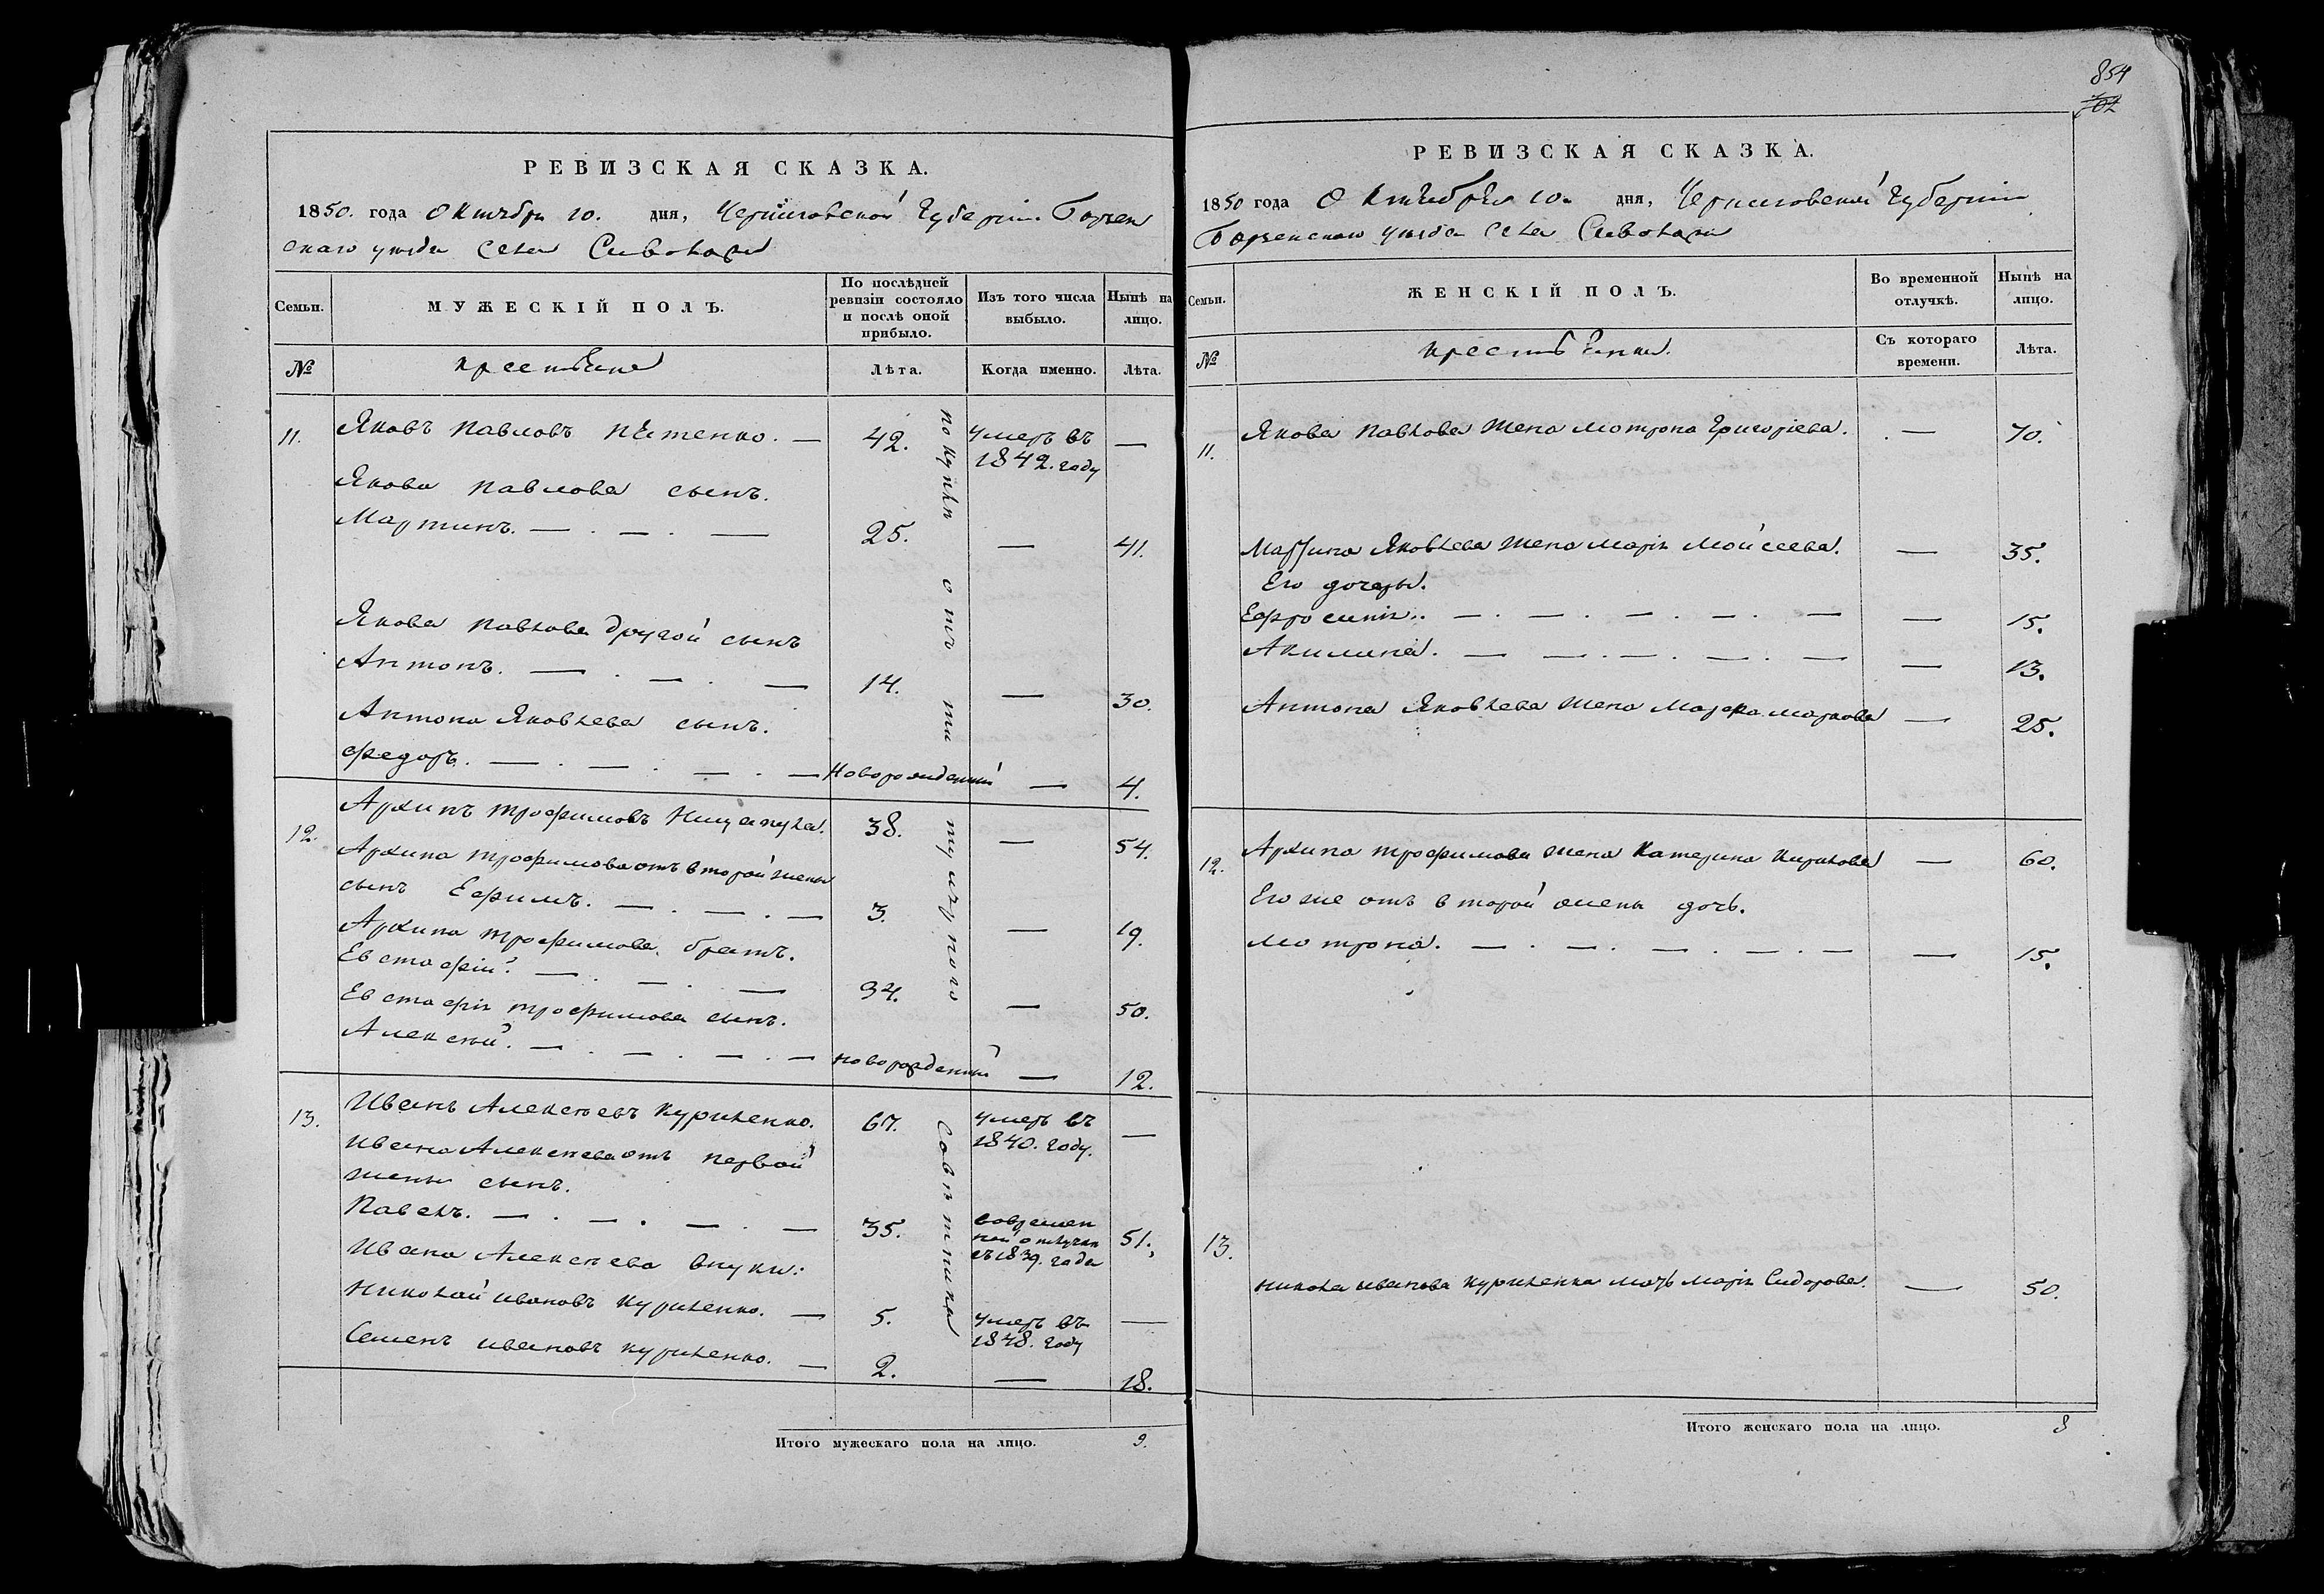 РЕВИЗСКАЯ СКАЗКА.
1850. года Октября 10. дня, Черниговской Губерніи Борзен
скаго уѣзда Села Сиволожи
Семьи.
МУЖЕСКІЙ ПОЛЪ.
По послѣдней
ревизіи состояло
и послѣ оной
прибыло.
Изъ того числа
выбыло.
Нынѣ на
лицо.
№
крестьяне
Лѣта.
Когда именно.
Лѣта.
11.
Яковъ Павловъ Петенко. —
42.
умеръ въ
1842. году
—
Якова Павлова сынъ.
Мартинъ. — . — . —
25.
—
41.
Якова Павлова другой сынъ
Антонъ. — . — . —
14.
—
30.
Антона Яковлева сынъ.
Федоръ. — . — . — . — новорожденный — 4.
покупкѣ отъ
12.
Архипъ Трофимовъ
38.
—
54.
Архипа Трофимова отъ второй жены
сынъ Ефимъ. — . — . —
3.
—
19.
Архипа Трофимова братъ.
Евстафій. — . — . —
34.
—
50.
Евстафія Трофимова сынъ.
Алексѣй. — . — . — . — новорожденный — 12.
13.
Иванъ Алексѣевъ Куриленко.
67.
умеръ въ
1840. году.
—
Ивана Алексѣева отъ первой
жены сынъ.
Павелъ. — . — . — . —
35.
во времен
ной отлучкѣ
съ 1839. года
51.
Ивана Алексѣева внуки:
Николай Ивановъ Куриленко. —
5.
умеръ въ
1848. году
—
Семенъ Ивановъ Куриленко. —
2.
—
18.
Итого мужескаго пола на лицо. 9.
854
702
РЕВИЗСКАЯ СКАЗКА.
1850 года Октября 10. дня, Черниговской Губерніи
Борзенскаго уѣзда Села Сиволожи
Семьи.
ЖЕНСКІЙ ПОЛЪ.
Во временной
отлучкѣ.
Нынѣ на
лицо.
№
крестьянки.
Съ котораго
времени.
Лѣта.
11.
Якова Павлова жена Мотрона Григоріева. — 70.
Мартина Яковлева жена Марія Моисеева. — 35.
Его дочеры.
Ефросинія. — . — . — . — . — — 15.
Акилина. — — . — . — . — — 13.
Антона Яковлева жена Марфа Маркова — 25.
12.
Архипа Трофимова жена Катерина Кирилова — 60.
Его же отъ второй жены дочь.
Мотрона. — . — . — . — . — — 15.
13.
Никола Иванова Куриленка мать Марія Сидорова. — 50.
Итого женскаго пола на лицо. 8